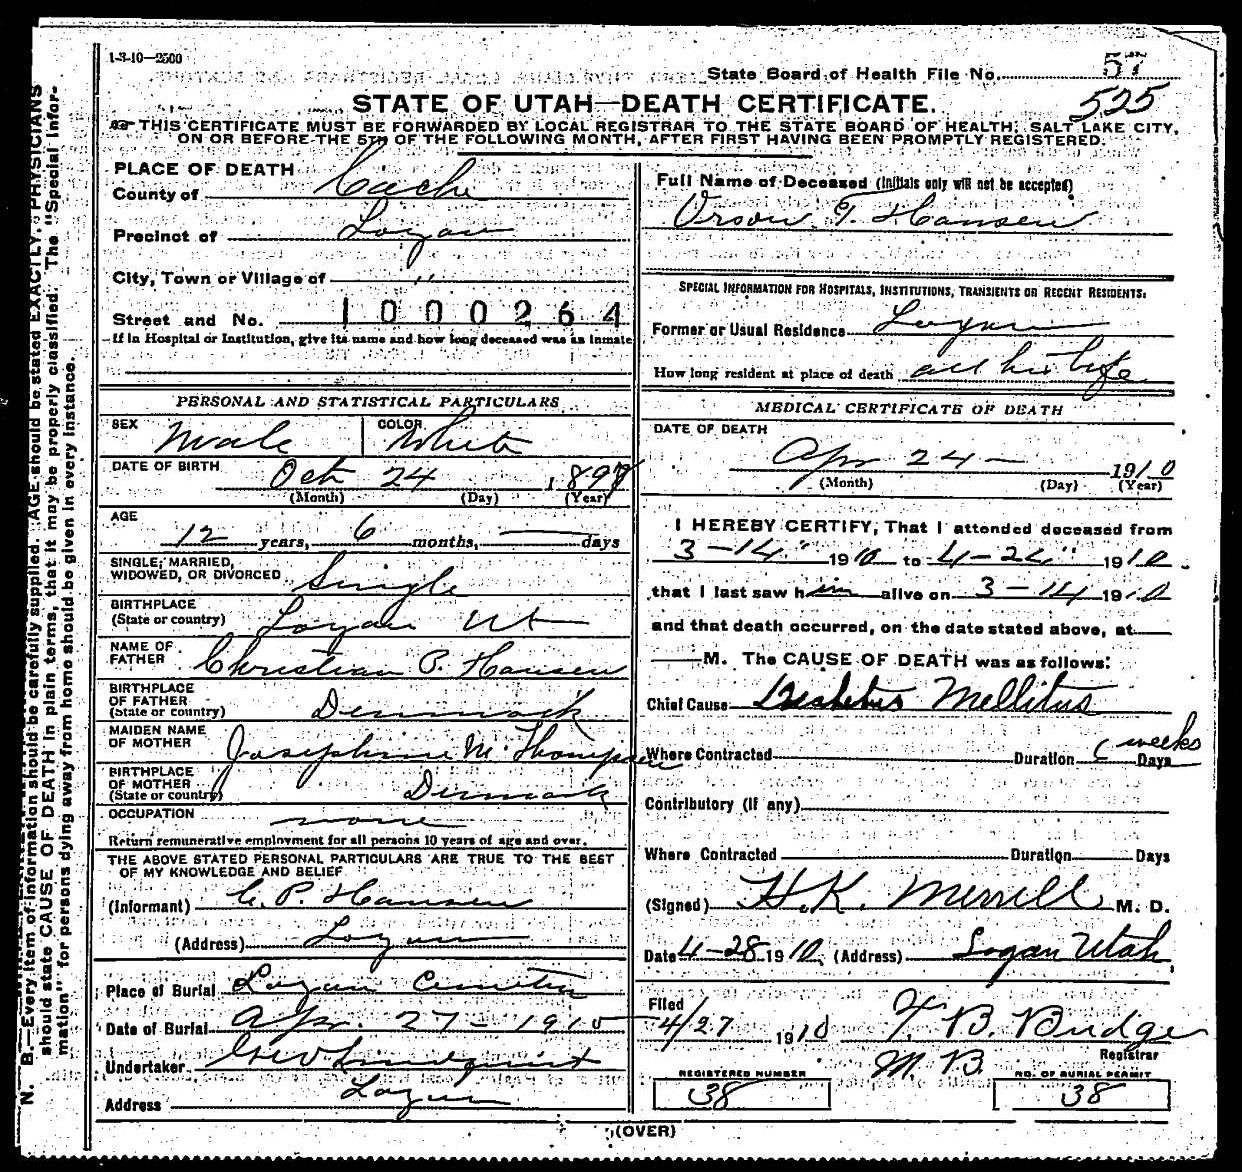 1-3-10—2500
State Board of Health File No. 57
525
STATE OF UTAH—DEATH CERTIFICATE.
THIS CERTIFICATE MUST BE FORWARDED BY LOCAL REGISTRAR TO THE STATE BOARD OF HEALTH, SALT LAKE CITY,
ON OR BEFORE THE 5TH OF THE FOLLOWING MONTH, AFTER FIRST HAVING BEEN PROMPTLY REGISTERED.
PLACE OF DEATH
County of Cache
Precinct of Logan
City, Town or Village of "
Street and No. 1000264
If in Hospital or Institution, give its name and how long deceased was as inmate
PERSONAL AND STATISTICAL PARTICULARS
SEX Male COLOR White
DATE OF BIRTH Oct 24 1897
(Month) (Day) (Year)
AGE
12 years, 6 months, — days
SINGLE, MARRIED,
WIDOWED, OR DIVORCED Single
BIRTHPLACE
(State or country) Logan Ut
NAME OF
FATHER Christian P. Hansen
BIRTHPLACE
OF FATHER
(State or country) Denmark
MAIDEN NAME
OF MOTHER Josephine M. Thompsen
BIRTHPLACE
OF MOTHER
(State or country) Denmark
OCCUPATION none
Return remunerative employment for all persons 10 years of age and over.
THE ABOVE STATED PERSONAL PARTICULARS ARE TRUE TO THE BEST
OF MY KNOWLEDGE AND BELIEF
(Informant) C. P. Hansen
(Address) Logan
Place of Burial Logan Cemetery
Date of Burial Apr. 27 - 1910
Undertaker Lindquist
Address Logan
Full Name of Deceased (Initials only will not be accepted)
Orson T. Hansen
SPECIAL INFORMATION FOR HOSPITALS, INSTITUTIONS, TRANSIENTS OR RECENT RESIDENTS.
Former or Usual Residence Logan
How long resident at place of death all his life
MEDICAL CERTIFICATE OF DEATH
DATE OF DEATH
Apr 24 — 1910
(Month) (Day) (Year)
I HEREBY CERTIFY, That I attended deceased from
3-14" 1910 to 4-24" 1910
that I last saw him alive on 3-14 1910
and that death occurred, on the date stated above, at
M. The CAUSE OF DEATH was as follows:
Chief Cause Diabetus Mellitus
Where Contracted Duration 6 weeks Days
Contributory (if any)
Where Contracted Duration Days
(Signed) H.K. Merrill M. D.
Date 4-28 1910 (Address) Logan Utah
Filed
4/27 1910 T. B. Budge
Registrar
REGISTERED NUMBER
38
NO. OF BURIAL PERMIT
38
(OVER)
N. B.—Every item of information should be carefully supplied. AGE should be stated EXACTLY. PHYSICIANS
should state CAUSE OF DEATH in plain terms, that it may be properly classified. The "Special Infor-
mation" for persons dying away from home should be given in every instance.